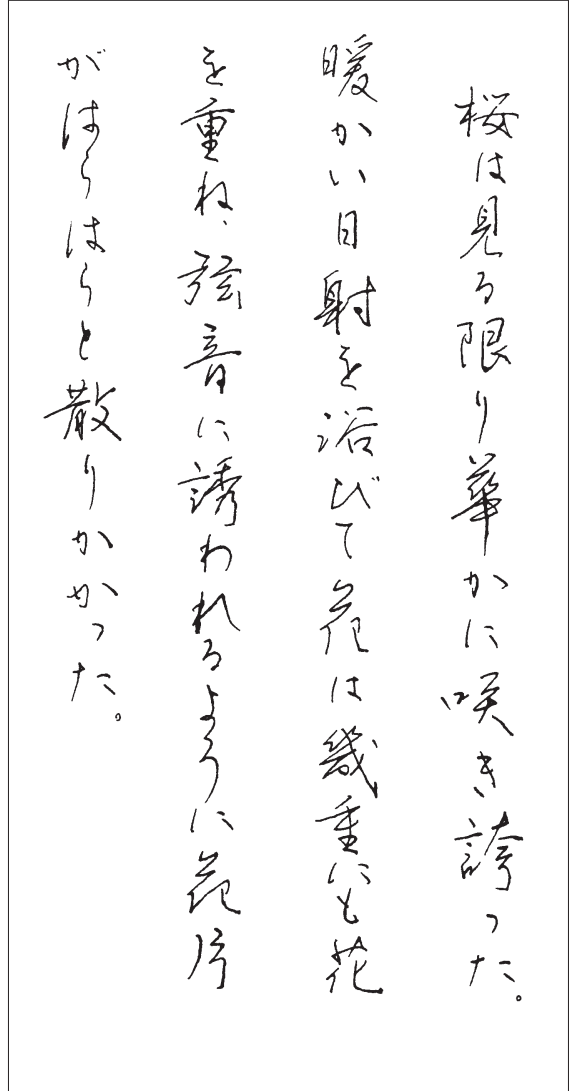 桜は見る限り華かに咲き誇った。
暖かい日射を浴びて花は幾重にも花
を重ね、弦音に誘われるように花片
がはらはらと散りかかった。